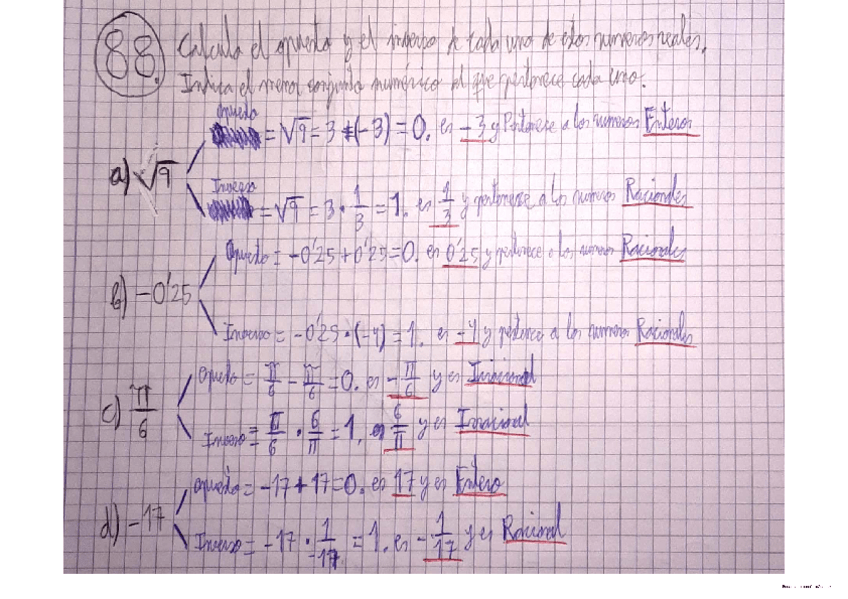 88. Calcula el opuesto y el inverso de cada uno de estos números reales.
Indica el menor conjunto numérico al que pertenece cada uno.
a) √9
opuesto = √9 = 3 + (-3) = 0. es -3 y Pertenece a los numeros Enteros
Inverso = √9 = 3 · 1/3 = 1. es 1/3 y pertenece a los numeros Racionales
b) -0'25
opuesto = -0'25 + 0'25 = 0. es 0'25 y pertenece a los numeros Racionales
Inverso = -0'25 · (-4) = 1. es -4 y pertenece a los numeros Racionales
c) π/6
opuesto = π/6 - π/6 = 0. es -π/6 y es Irracional
Inverso = π/6 · 6/π = 1. es 6/π y es Irracional
d) -17
opuesto = -17 + 17 = 0. es 17 y es Entero
Inverso = -17 · 1/-17 = 1. es -1/17 y es Racional